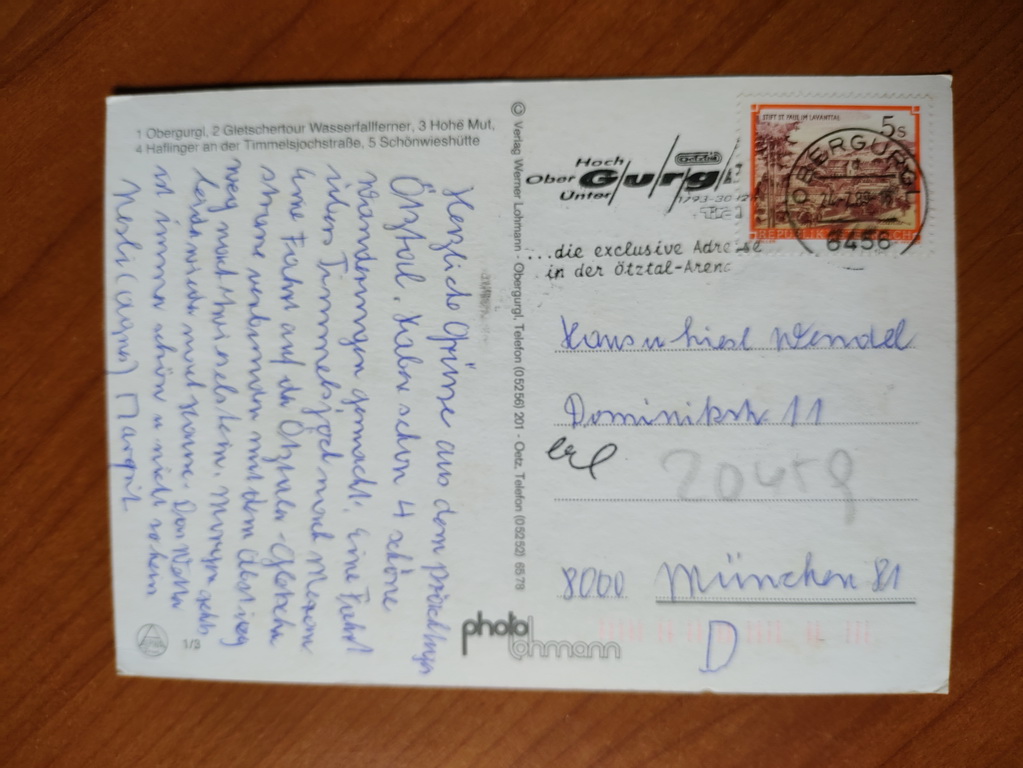 1 Obergurgl, 2 Gletschertour Wasserfallferner, 3 Hohe Mut,
4 Haflinger an der Timmelsjochstraße, 5 Schönwieshütte
Herzliche Grüsse aus dem prächtigen
Ötztal. Haben schon 4 schöne
Wanderungen gemacht, eine Fahrt
übers Timmelsjoch nach Meran
eine Fahrt auf der Ötztaler-Gletscher
strasse verbunden mit dem Abstieg
weg nach Morgen geht's
leider wieder nach Hause. Das Wetter
ist immer schön u nicht so heiss
Margrit
© Verlag Werner Lohmann - Obergurgl, Telefon (05256) 201 - Oetz, Telefon (05252) 6578
photo lohmann
1/3
Hoch
Ober Gurgl
Unter
Ötztal
1793-30
Tirol
...die exclusive Adresse
in der Ötztal-Arena
STIFT ST. PAUL IM LAVANTTAL
5 S
REPUBLIK ÖSTERREICH
OBERGURGL
6456
Hans u Liesl Wendel
Dominikstr 11
erl
8000 München 81
D